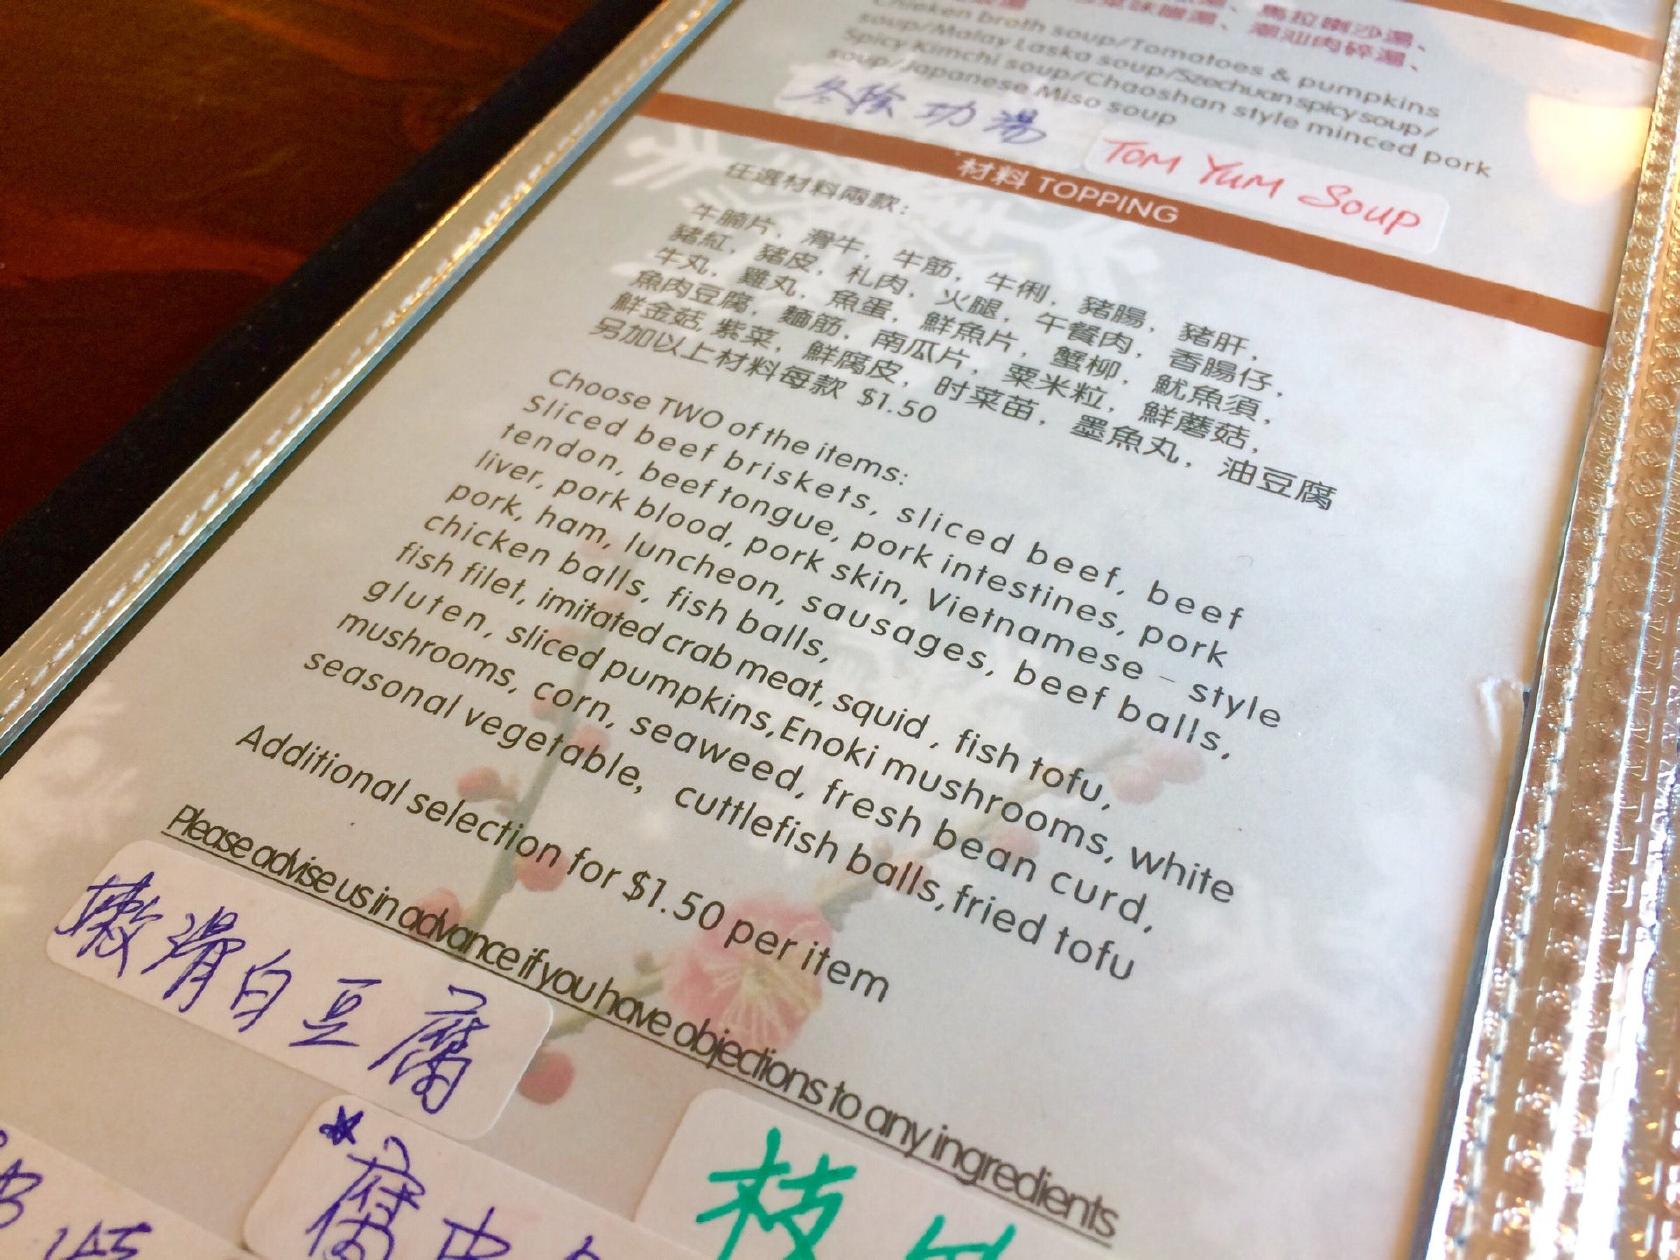 馬拉喇沙湯、
潮汕肉碎湯、
Chicken broth soup/Tomatoes & pumpkins
soup/Malay Laska soup/Szechuan spicy soup/
Spicy Kimchi soup/Chaoshan style minced pork
soup/Japanese Miso soup
冬陰功湯
TOM YUM Soup
材料 TOPPING
任選材料兩款:
牛腩片, 滑牛, 牛筋, 牛脷, 豬腸, 豬肝,
豬紅, 豬皮, 札肉, 火腿, 午餐肉, 香腸仔,
牛丸, 雞丸, 魚蛋, 鮮魚片, 蟹柳, 魷魚須,
魚肉豆腐, 麵筋, 南瓜片, 粟米粒, 鮮蘑菇,
鮮金菇, 紫菜, 鮮腐皮, 时菜苗, 墨魚丸, 油豆腐
另加以上材料每款 $1.50
Choose TWO of the items:
Sliced beef briskets, sliced beef, beef
tendon, beef tongue, pork intestines, pork
liver, pork blood, pork skin, Vietnamese - style
pork, ham, luncheon, sausages, beef balls,
chicken balls, fish balls,
fish filet, imitated crab meat, squid, fish tofu,
gluten, sliced pumpkins, Enoki mushrooms, white
mushrooms, corn, seaweed, fresh bean curd,
seasonal vegetable, cuttlefish balls, fried tofu
Additional selection for $1.50 per item
Please advise us in advance if you have objections to any ingredients
嫩滑白豆腐
*腐
枝